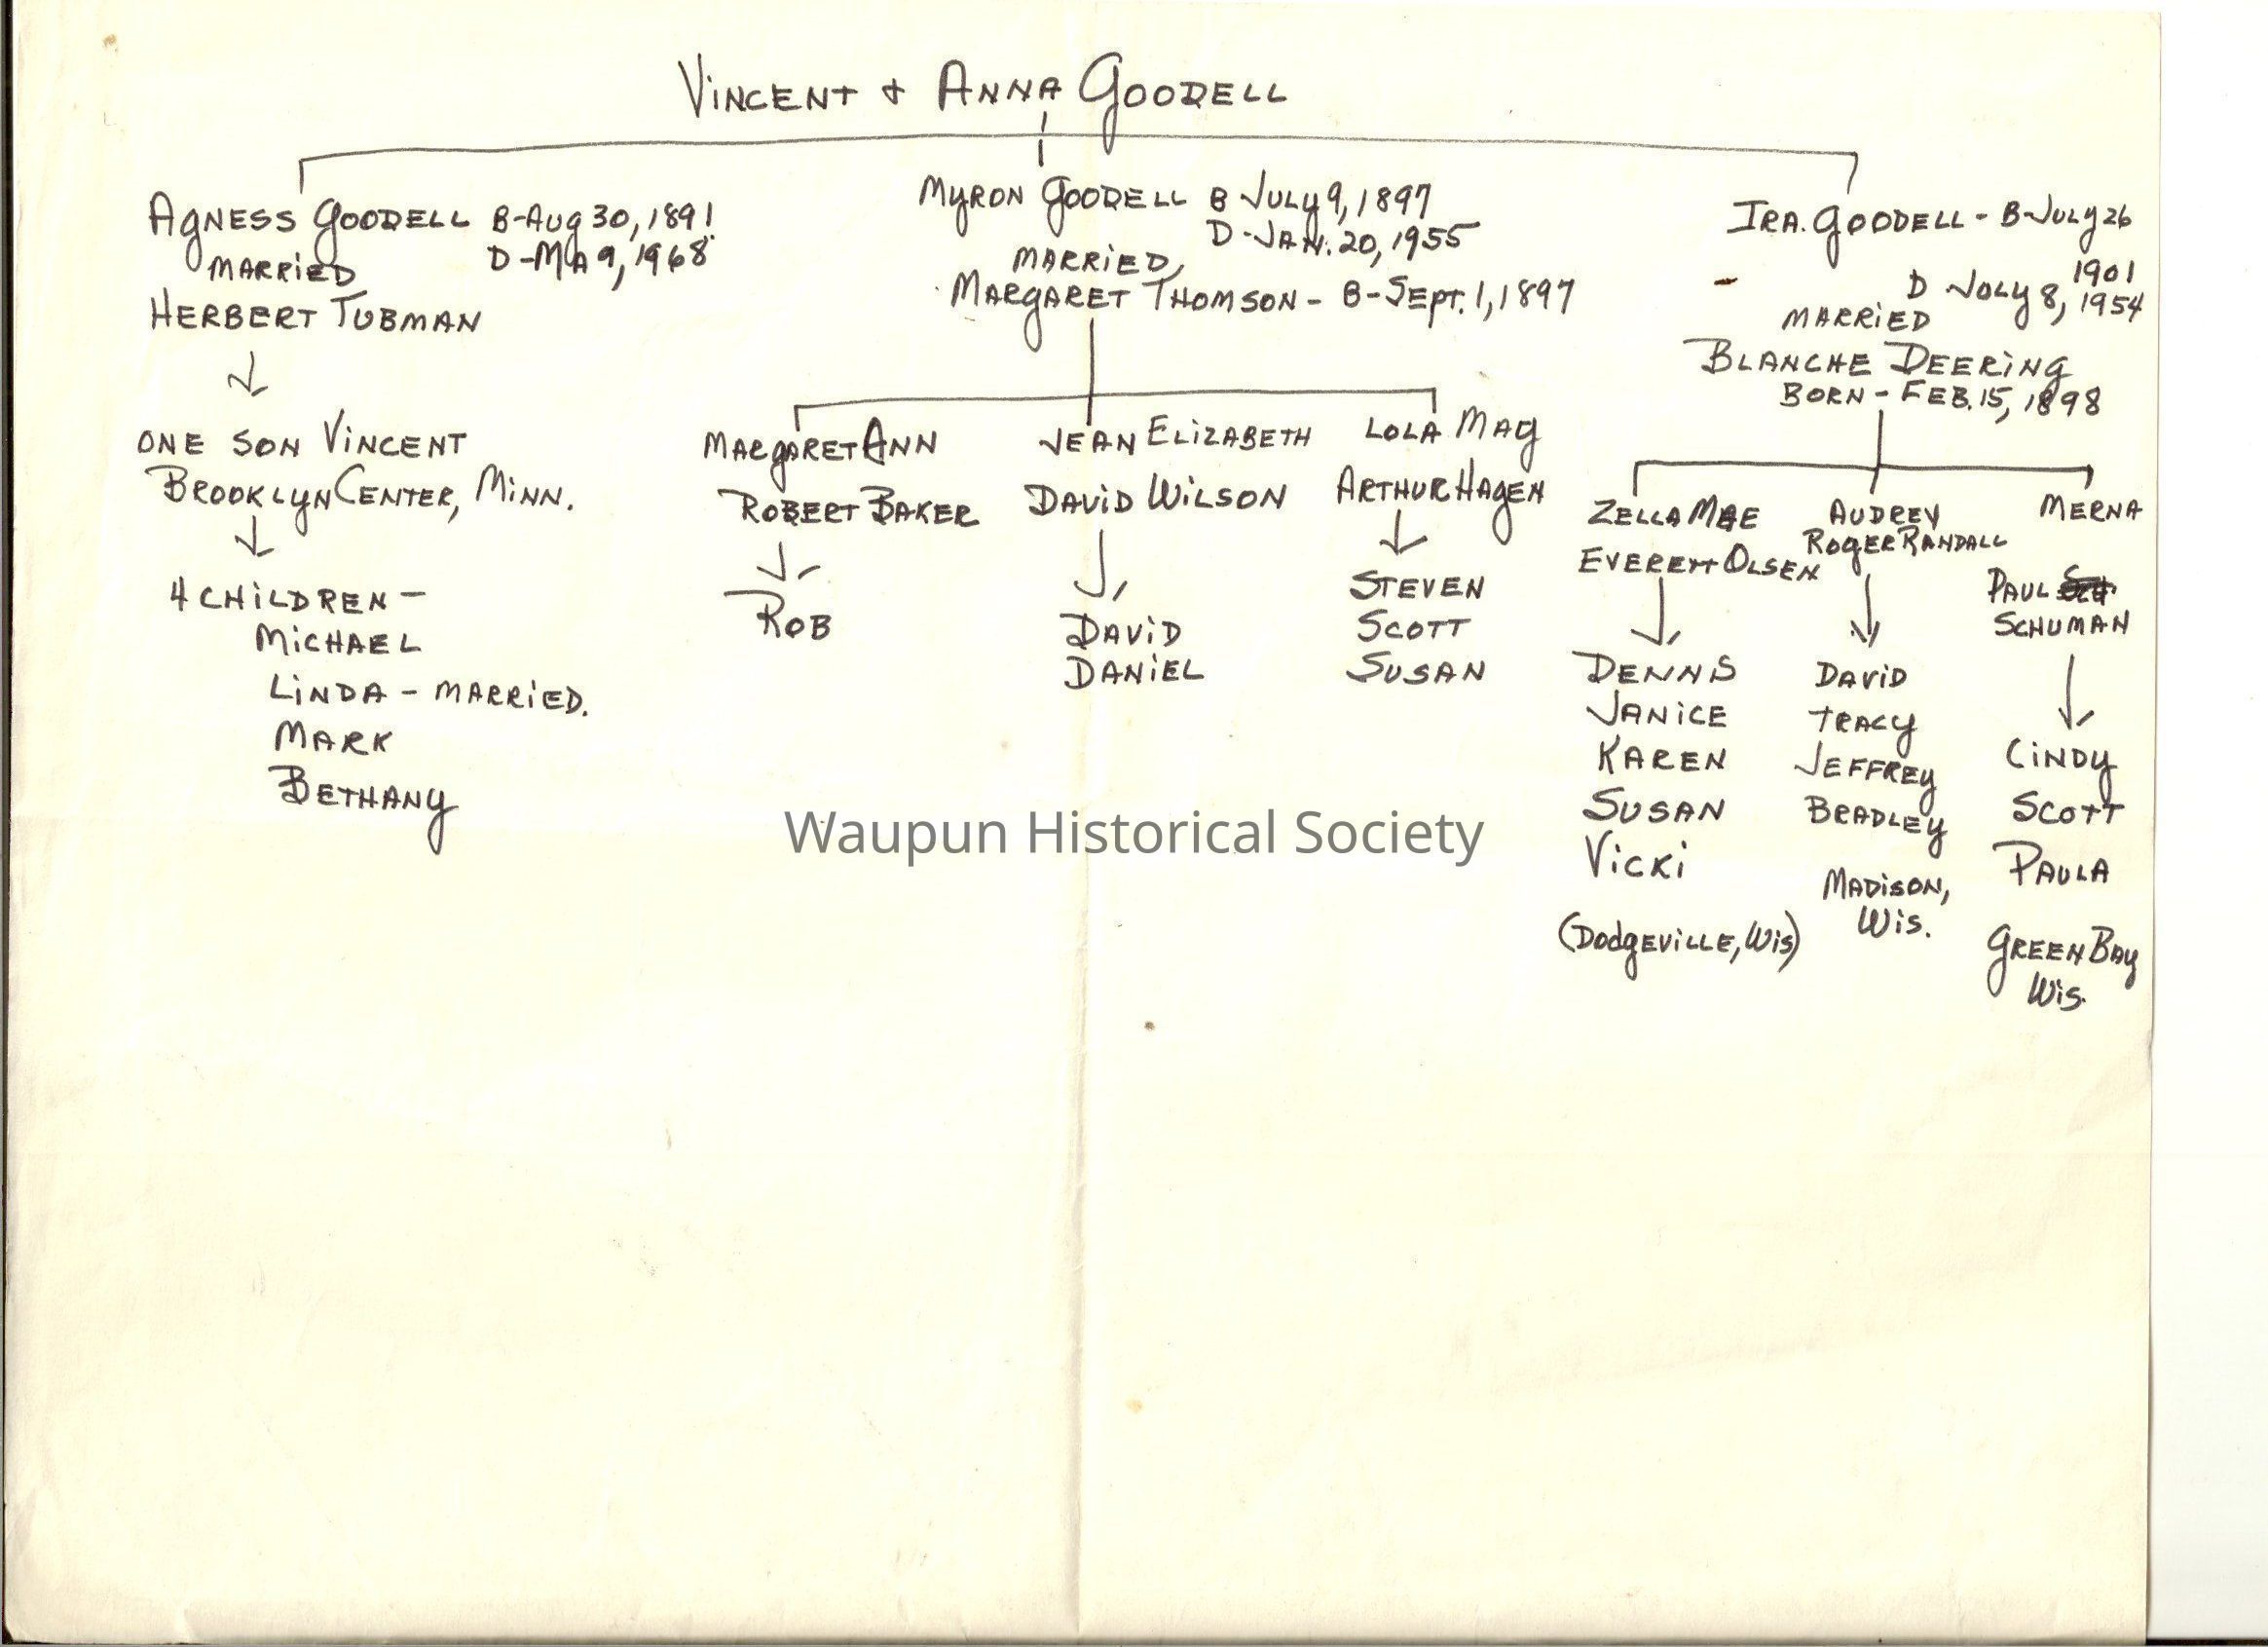 Vincent + Anna Goodell
Agness Goodell B-Aug 30, 1891
D-Ma 9, 1968
married
Herbert Tubman
↓
one son Vincent
Brooklyn Center, Minn.
↓
4 children-
Michael
Linda - married.
Mark
Bethany
Myron Goodell B July 9, 1897
D-Jan. 20, 1955
married,
Margaret Thomson - B-Sept. 1, 1897
Margaret Ann
Robert Baker
↓
Rob
Jean Elizabeth
David Wilson
↓
David
Daniel
Lola Mae
Arthur Hagen
↓
Steven
Scott
Susan
Ira. Goodell - B-July 26
1901
D July 8, 1954
married
Blanche Deering
Born - Feb. 15, 1898
Zella Mae
Everett Olsen
↓
Dennis
Janice
Karen
Susan
Vicki
(Dodgeville, Wis)
Audrey
Roger Randall
↓
David
Tracy
Jeffrey
Bradley
Madison,
Wis.
Merna
Paul
Schuman
↓
Cindy
Scott
Paula
Green Bay
Wis.
Waupun Historical Society